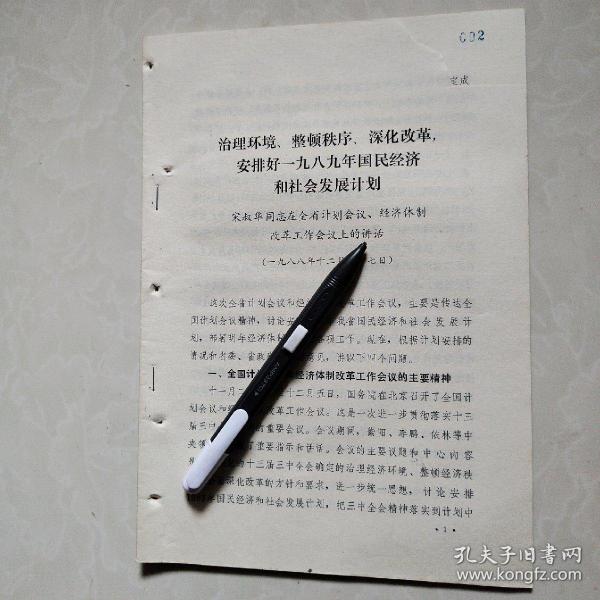 002
定成
治理环境、整顿秩序、深化改革,
安排好一九八九年国民经济
和社会发展计划
宋叔华同志在全省计划会议、经济体制
改革工作会议上的讲话
(一九八八年十二月 七日)
这次全省计划会议和经 改革工作会议,主要是传达全
国计划会议精神,讨论安 我省国民经济和社会发展计
划,部署明年经济体 各项工作。现在,根据计划安排的
情况和省委、省政 意见,讲以下四个问题。
一、全国计 经济体制改革工作会议的主要精神
十一月二 十二月五日,国务院在北京召开了全国计
划会议和经 改革工作会议。这是一次进一步贯彻落实十三
届三中 的重要会议。会议期间,紫阳、李鹏、依林等中
央领 了重要指示和讲话。会议的主要议题和中心内容
的十三届三中全会确定的治理经济环境、整顿经济秩
深化改革的方针和要求,进一步统一思想,讨论安排
年国民经济和社会发展计划,把三中全会精神落实到计划中
·1·
孔夫子旧书网
www.kongfz.com